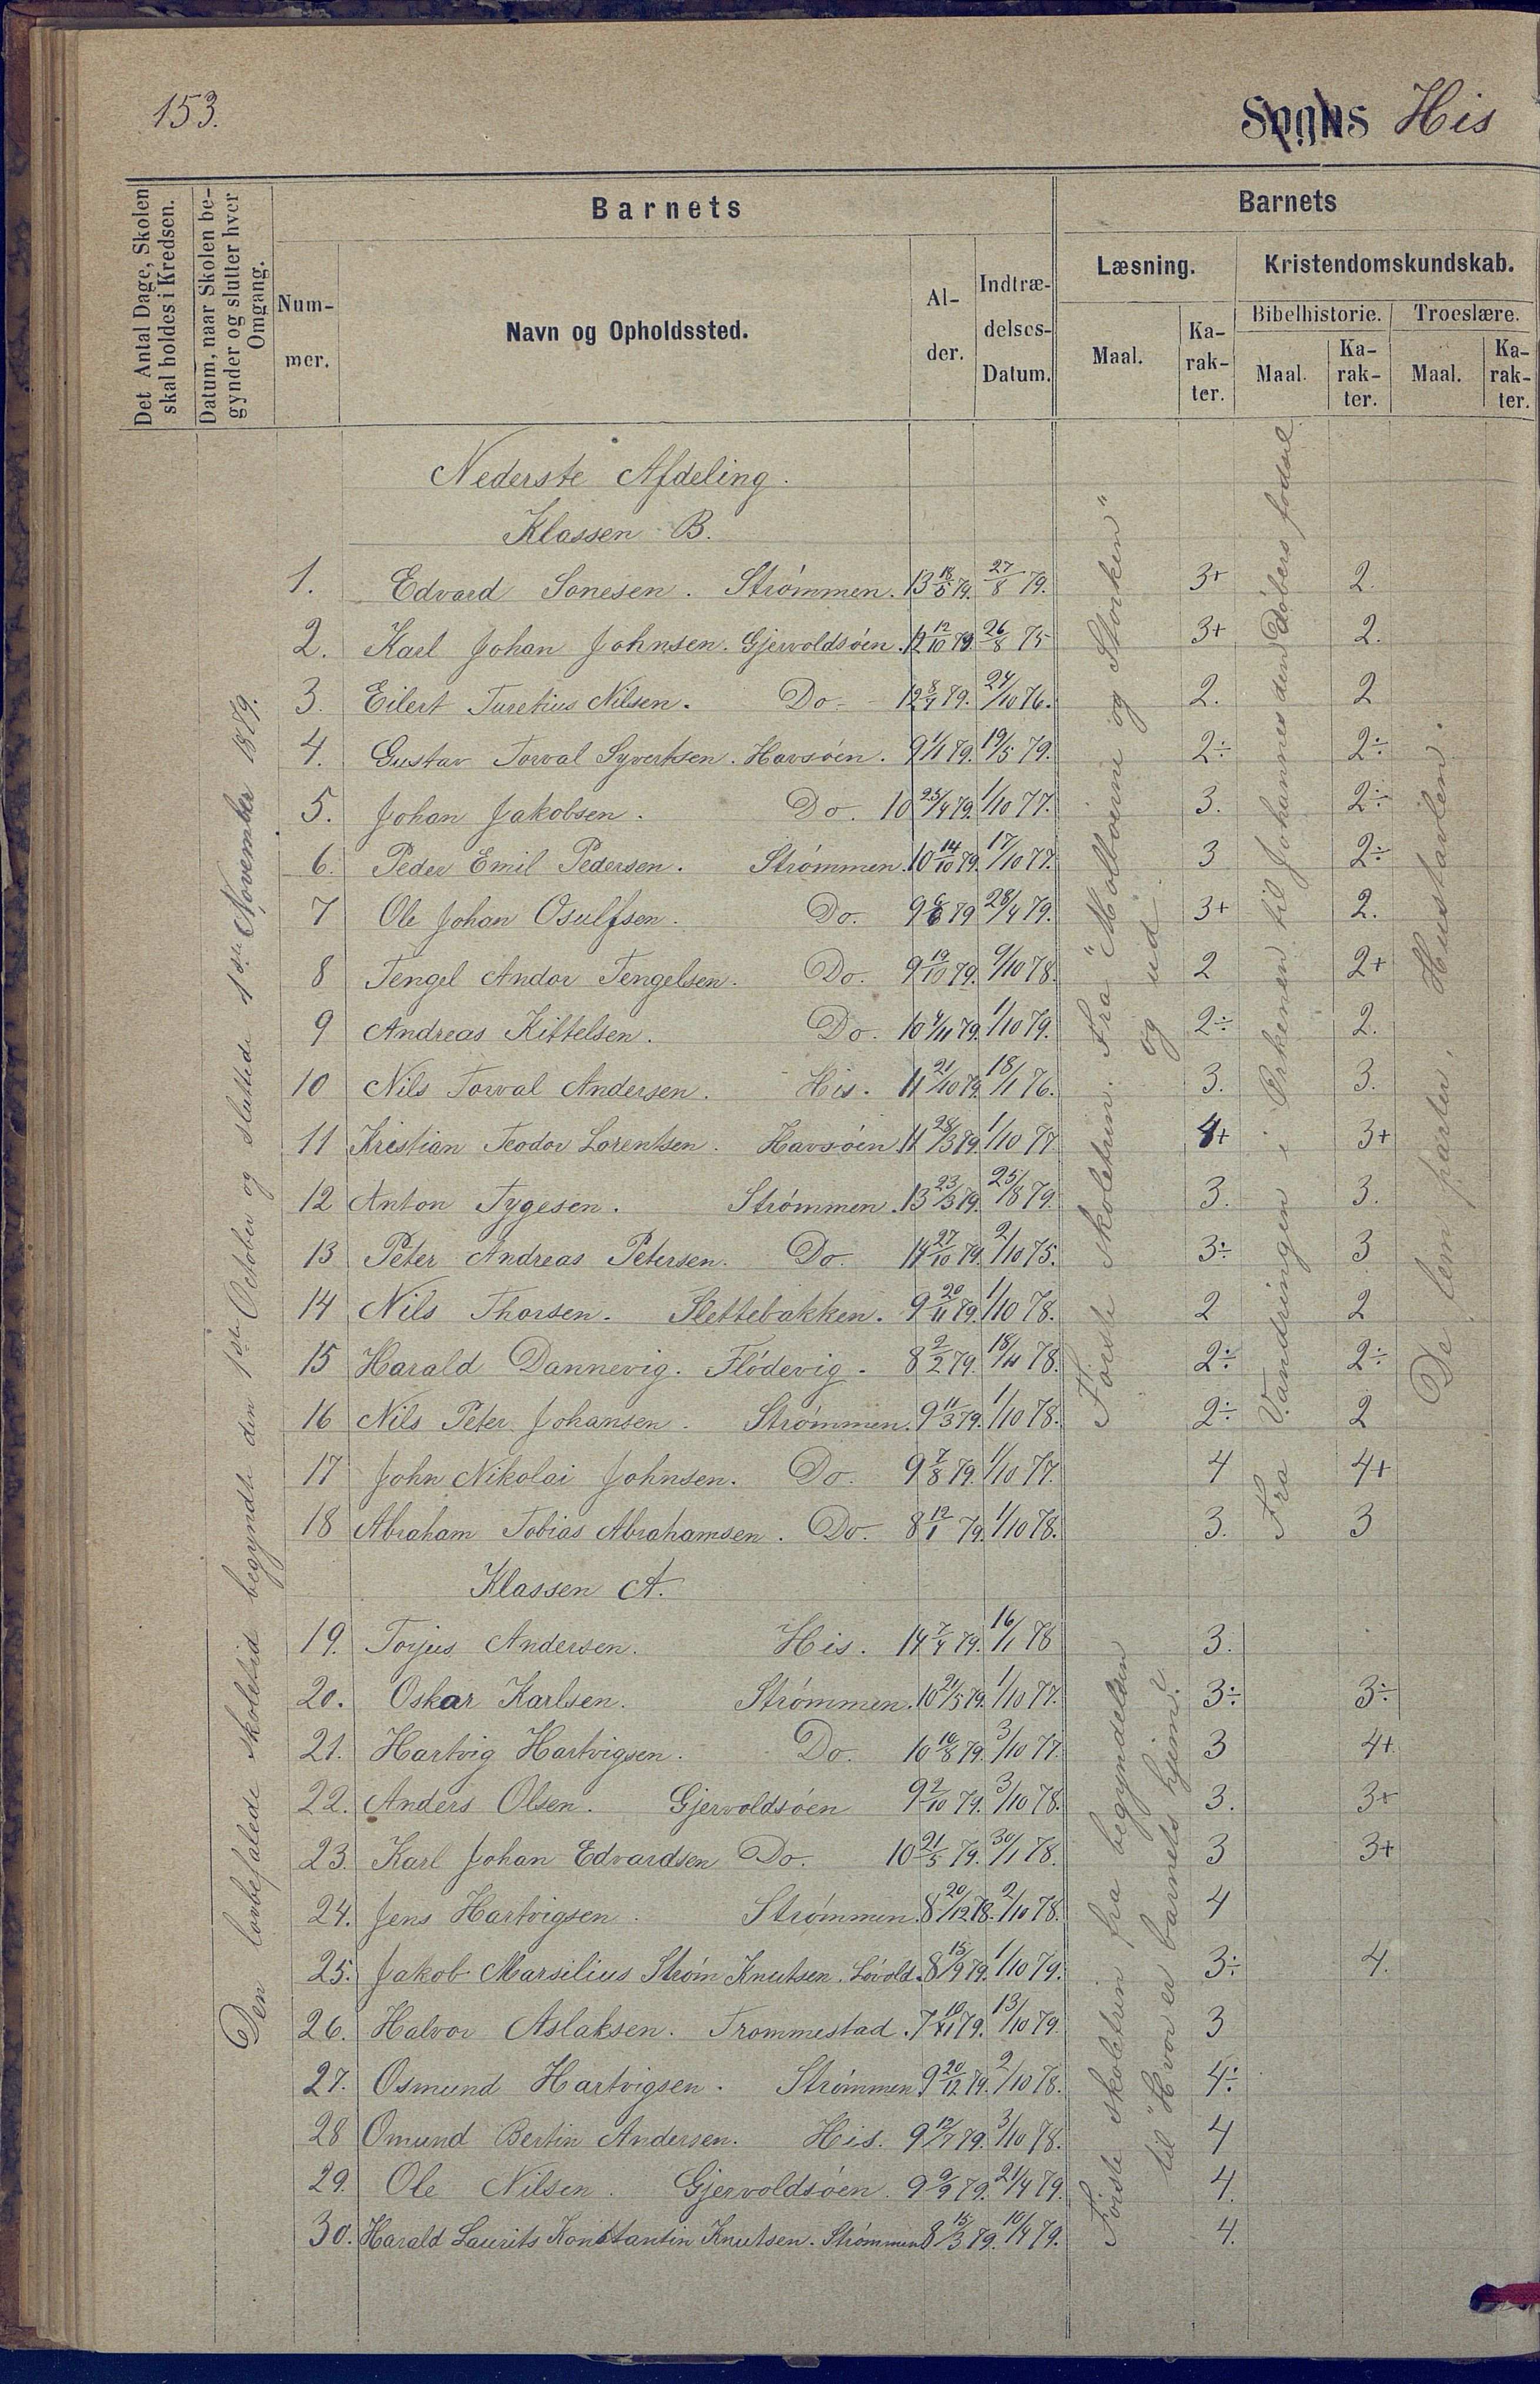 153.
Sogns His
Det Antal Dage, Skolen
skal holdes i Kredsen.
Datum, naar Skolen be-
gynder og slutter hver
Omgang.
Barnets
Num-
mer.
Navn og Opholdssted.
Al-
der.
Indtræ-
delses-
Datum.
Barnets
Læsning.
Kristendomskundskab.
Maal.
Ka-
rak-
ter.
Bibelhistorie.
Troeslære.
Maal.
Ka-
rak-
ter.
Maal.
Ka-
rak-
ter.
Den lovbefalede skoletid begyndte den 1ste October og sluttede 1ste November 1879.
Nederste Afdeling.
Klassen B.
1. Edvard Sonesen. Strømmen. 13 18/5 79. 27/8 79. 3+ 2.
2. Karl Johan Johnsen. Gjervoldsøen. 12 12/10 79. 26/8 75 3+ 2.
3 Eilert Turetius Nilsen. Do. 12 8/4 79. 24/10 76. 2. 2
4. Gustav Torval Syvertsen. Havsøen. 9 1/1 79. 19/5 79. 2÷ 2÷
5. Johan Jakobsen. Do. 10 25/4 79. 1/10 77. 3. 2÷
6. Peder Emil Pedersen. Strømmen. 10 14/10 79. 17/10 77. 3 2÷
7 Ole Johan Osulfsen. Do. 9 6/6 79 28/4 79. 3+ 2.
8 Tengel Andor Tengelsen. Do. 9 19/10 79. 9/10 78. 2 2+
9 Andreas Kittelsen. Do. 10 4/11 79. 1/10 79. 2÷ 2.
10 Nils Torval Andersen. His. 11 21/10 79. 18/1 76. 3. 3.
11 Kristian Teodor Lorentsen. Havsøen 11 28/3 79. 1/10 77. 4+ 3+
12 Anton Tygesen. Strømmen. 13 23/3 79. 25/8 79. 3. 3.
13 Peter Andreas Petersen. Do. 14 27/10 79. 2/10 75. 3÷ 3
14 Nils Thorsen. Slettebakken. 9 20/11 79. 1/10 78. 2 2
15 Harald Dannevig. Flødevig. 8 2/2 79. 18/11 78. 2÷ 2÷
16 Nils Peter Johansen. Strømmen. 9 11/3 79. 1/10 78. 2÷ 2
17 John Nikolai Johnsen. Do. 9 7/8 79. 1/10 77. 4 4+
18 Abraham Tobias Abrahamsen. Do. 8 12/1 79. 1/10 78. 3. 3
Første skoletrin. Fra "Molboerne og Storken"
og ud.
Fra Vandringen i Ørkenen til Johannes den Døbers fødsel
De fem parter, Hustavlen.
Klassen A.
19. Torjus Andersen. His. 14 7/4 79. 16/1 78 3.
20. Oskar Karlsen. Strømmen. 10 21/5 79. 1/10 77. 3÷ 3÷
21. Hartvig Hartvigsen. Do. 10 10/8 79. 3/10 77. 3 4+
22. Anders Olsen. Gjervoldsøen 9 2/10 79. 3/10 78. 3. 3+
23. Karl Johan Edvardsen Do. 10 21/5 79. 30/1 78. 3 3+
24. Jens Hartvigsen. Strømmen. 8 20/12 78. 2/10 78. 4
25. Jakob Marsilius Strøm Knutsen. Løvold. 8 15/9 79. 1/10 79. 3÷ 4.
26. Halvor Aslaksen. Trommestad. 7 10/11 79. 13/10 79. 3
27. Osmund Hartvigsen. Strømmen. 9 20/12 79. 2/10 78. 4÷
28 Omund Bertin Andersen. His. 9 12/7 79. 3/10 78. 4
29. Ole Nilsen. Gjervoldsøen. 9 9/9 79. 21/4 79. 4.
30. Harald Laurits Konstantin Knutsen. Strømmen 8 15/3 79. 10/4 79. 4.
Første skoletrin fra begyndelsen
til "Hvor er barnets hjem?"